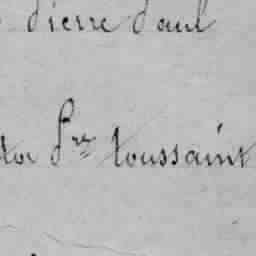 Pierre Paul
la Pre toussaint